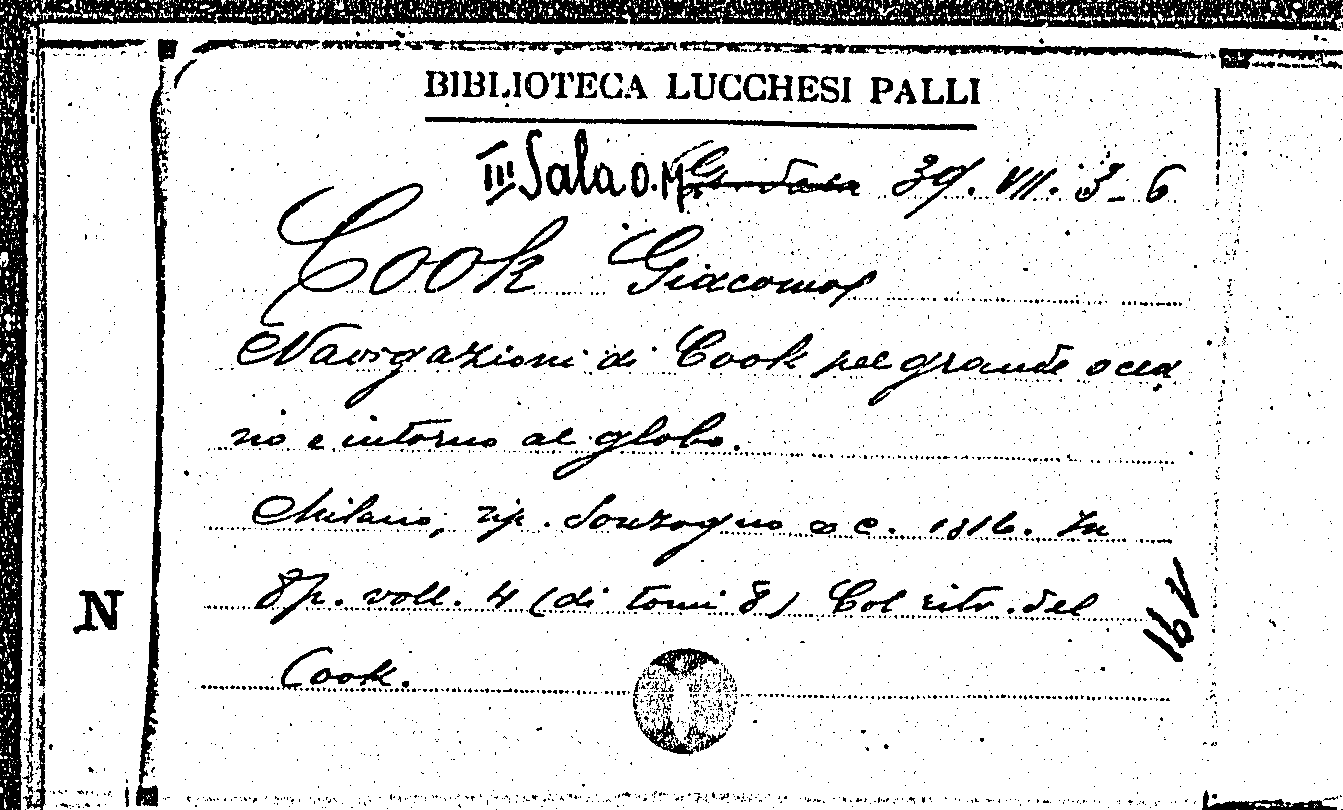 BIBLIOTECA LUCCHESI PALLI
III Sala O. M. Sala 39. VII. 3-6
Cook Giacomo
Navigazioni di Cook pel grande ocea
no e intorno al globo.
Milano, tip. Sonzogno e C. 1816. In
8p. voll. 4 (di tomi 8) Col ritr. del
N
Cook.